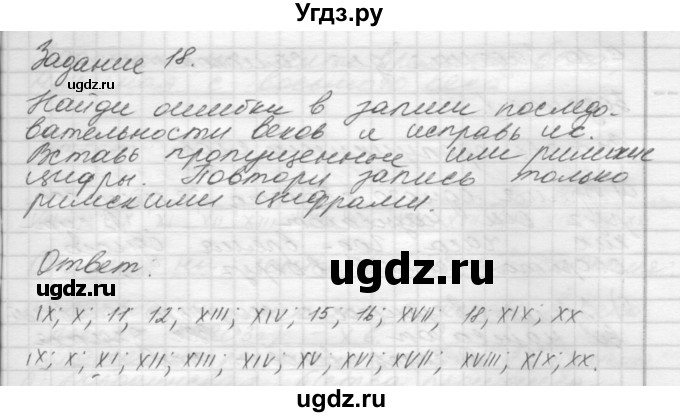 Угдз.ру
Задание 18.
Найди ошибки в записи последо-
вательности веков и исправь их.
Вставь пропущенное или римские
цифры. Повтори запись только
римскими цифрами.
Ответ:
ugdz.ru
ugdz.ru
ugdz.ru
IX; X; 11; 12; XIII; XIV; 15; 16; XVII; 18, XIX; XX
IX; X; XI; XII; XIII; XIV; XV; XVI; XVII; XVIII; XIX; XX.
ugdz.ru